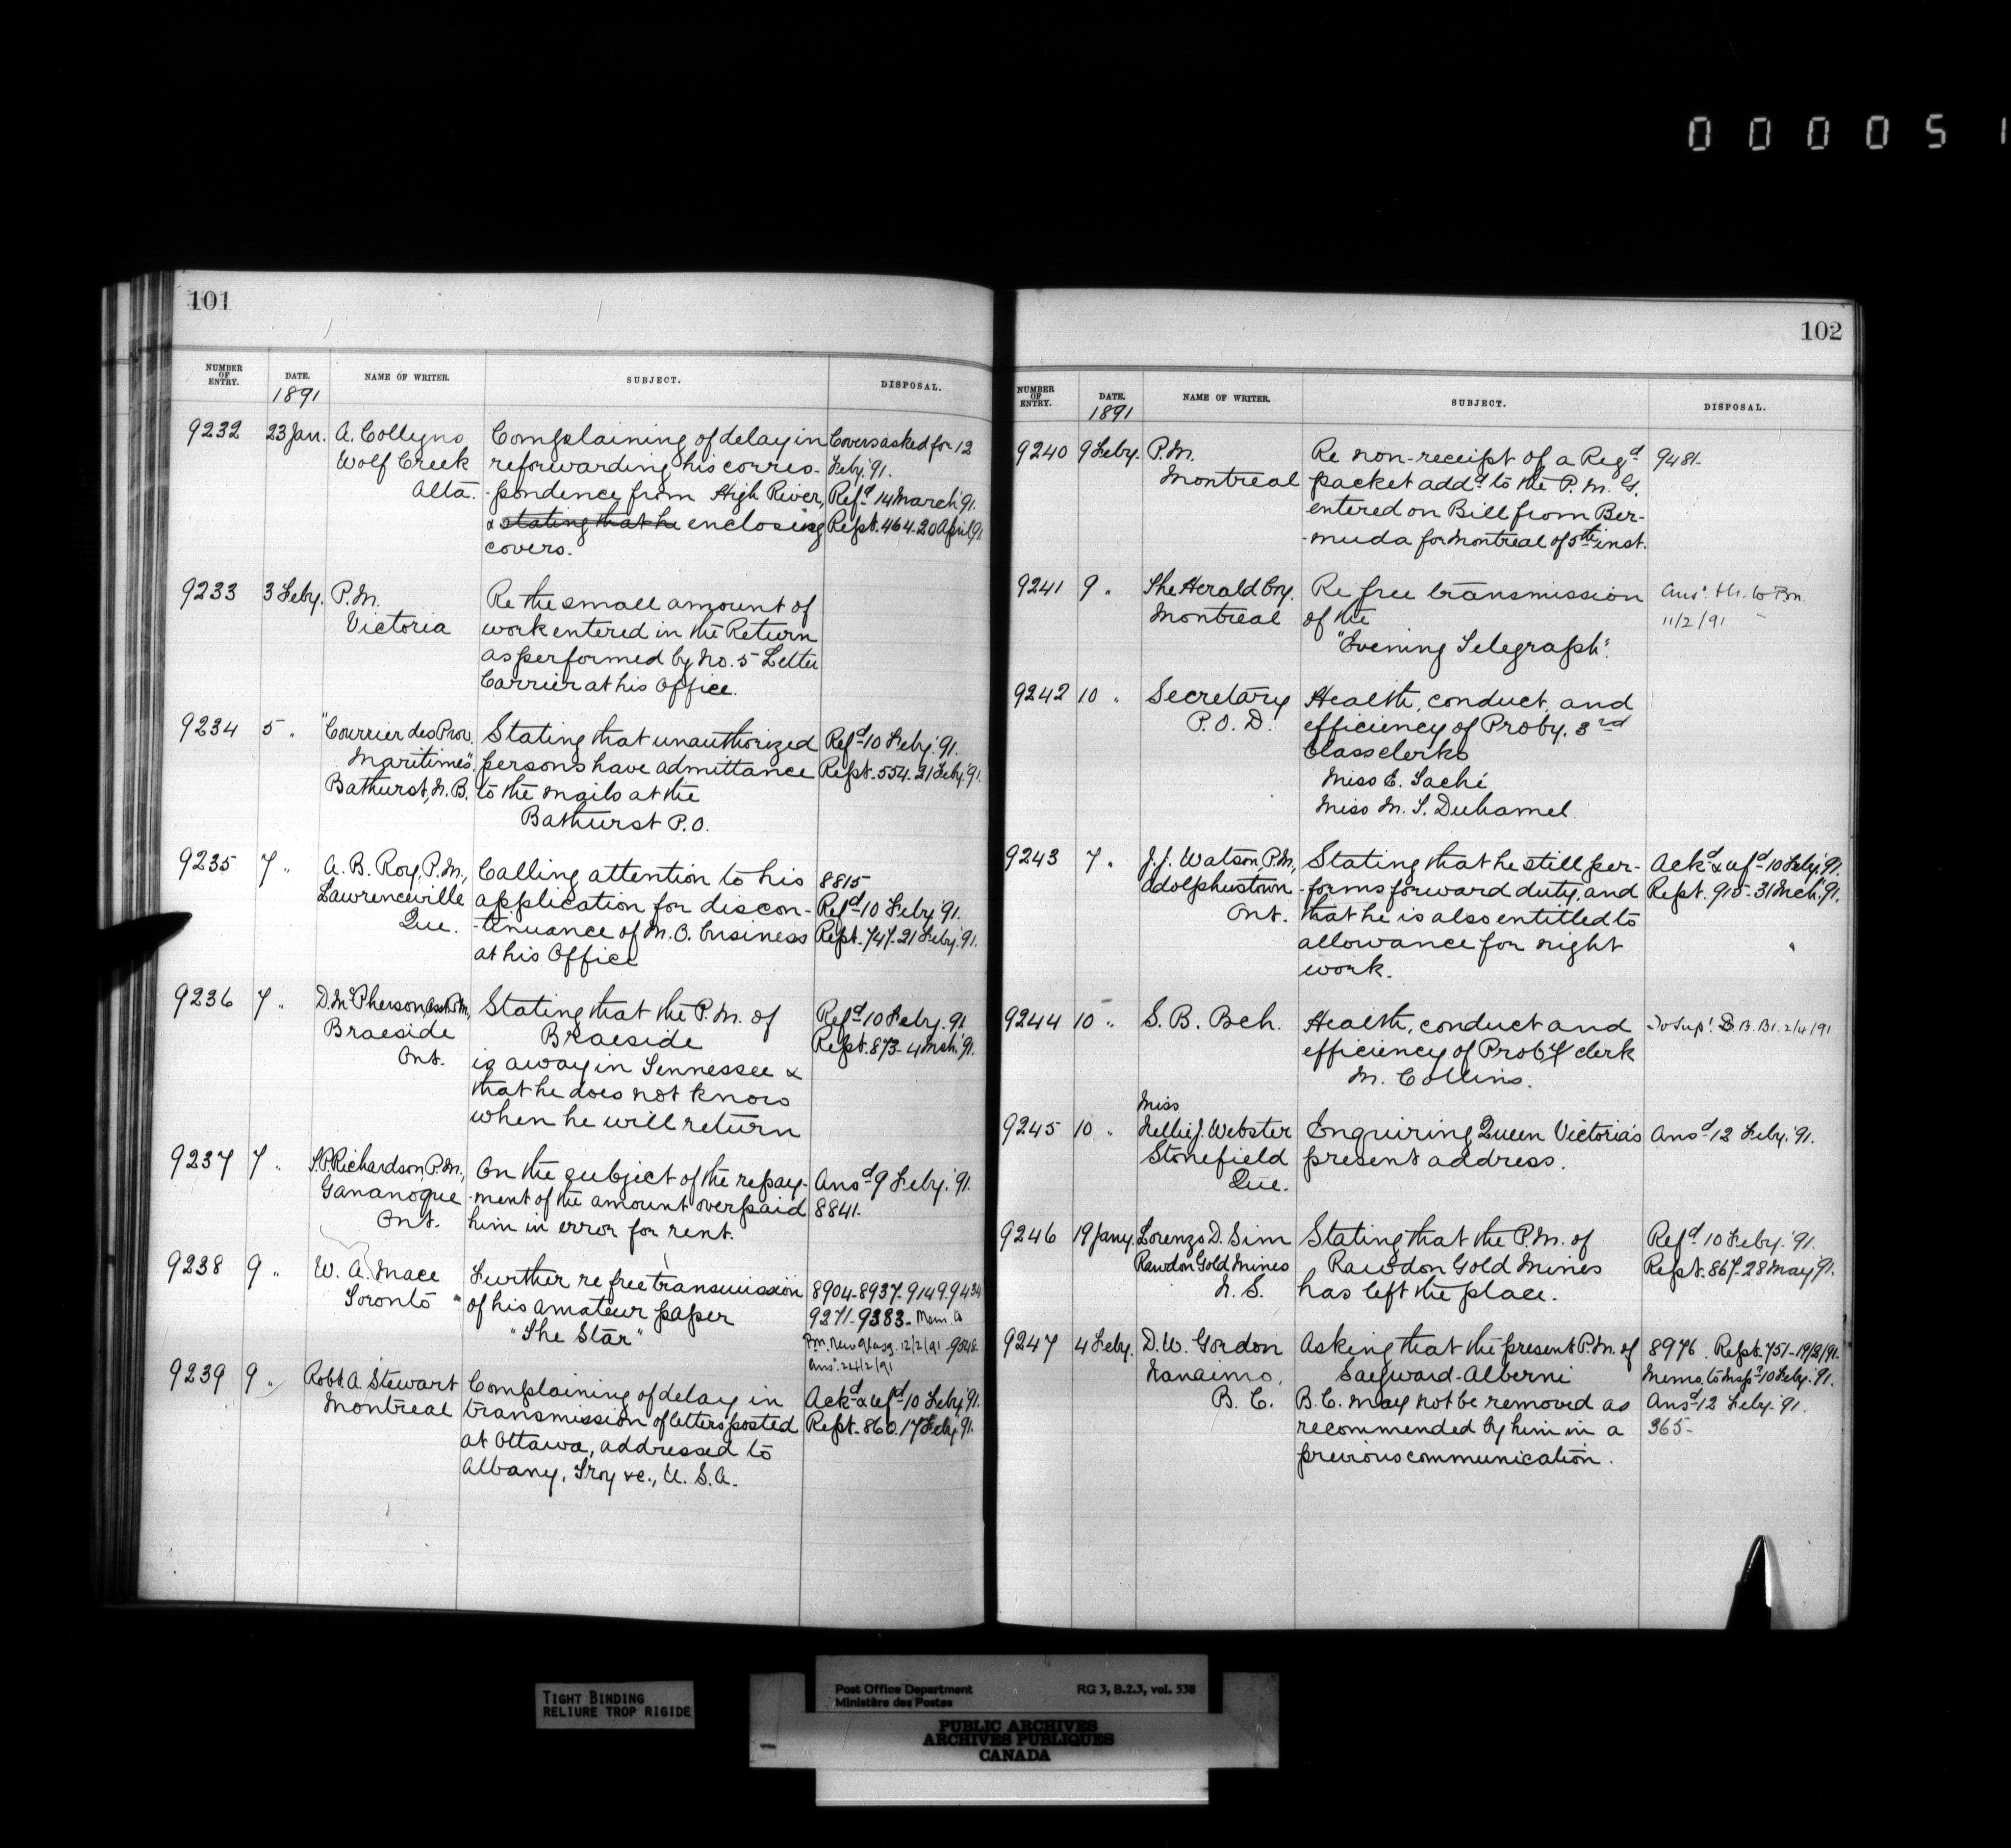 0 0 0 0 5 1
101
NUMBER OF ENTRY. DATE. NAME OF WRITER. SUBJECT. DISPOSAL.
1891
9232 23 Jan. A. Collyns Complaining of delay in Covers asked for 12
Wolf Creek reforwarding his corres- Feby. '91.
Alta. -pondence from High River, Refd 14 March '91.
& stating that he enclosing Rept. 464-20 April '91
covers.
9233 3 Feby. P.M. Re the small amount of
Victoria work entered in the Return
as performed by No. 5 Letter
Carrier at his Office.
9234 5 " "Courrier des Prov. Stating that unauthorized Refd 10 Feby. '91.
Maritimes". persons have admittance Rept. 554-21 Feby. '91.
Bathurst, N.B. to the mails at the
Bathurst P.O.
9235 7 " A. B. Roy, P.M., Calling attention to his 8815
Lawrenceville application for discon- Refd 10 Feby. '91.
Que. -tinuance of M.O. business Rept. 747-21 Feby. '91.
at his Office
9236 7 " D. McPherson, Asst P.M., Stating that the P.M. of Refd 10 Feby. '91
Braeside Braeside Rept. 873-4 Mch. '91.
Ont. is away in Tennessee &
that he does not know
when he will return
9237 7 " S.P. Richardson, P.M., On the subject of the repay- Ansd 9 Feby. '91.
Gananoque -ment of the amount overpaid 8841.
Ont. him in error for rent.
9238 9 " W. A. Mace Further re free transmission 8904-8937-9149-9434
Toronto of his amateur paper 9271-9383- Mem. to
"The Star" P.M. New Glasg. 12/2/91
Ans. 24/2/91
9239 9 " Robt. A. Stewart Complaining of delay in Ackd & refd 10 Feby. '91.
Montreal transmission of letters posted Rept. 860. 17 Feby. '91.
at Ottawa, addressed to
Albany, Troy &c., U.S.A.
102
NUMBER OF ENTRY. DATE. NAME OF WRITER. SUBJECT. DISPOSAL.
1891
9240 9 Feby. P.M. Re non-receipt of a Regd 9481-
Montreal packet addd to the P.M.G.
entered on Bill from Ber-
-muda for Montreal of 5th inst.
9241 9 " The Herald Coy. Re free transmission Ans. to P.M.
Montreal of the 11/2/91
"Evening Telegraph".
9242 10 " Secretary Health, conduct, and
P.O.D. efficiency of Proby. 3rd
Class clerks
Miss E. Taché
Miss M. T. Duhamel
9243 7 " J. J. Watson, P.M., Stating that he still per- Ackd & refd 10 Feby. '91.
Adolphustown -forms forward duty, and Rept. 915-31 Mch. '91.
Ont. that he is also entitled to
allowance for night
work.
9244 10 " S. B. Bch. Health, conduct and To Supt. S.B. Br. 2/4/91
efficiency of Proby clerk
M. Collins.
Miss
9245 10 " Nellie J. Webster Enquiring Queen Victoria's Ansd 12 Feby. '91.
Stonefield present address.
Que.
9246 19 Jany. Lorenzo D. Sim Stating that the P.M. of Refd 10 Feby. '91.
Rawdon Gold Mines Rawdon Gold Mines Rept. 867-28 May '91.
N.S. has left the place.
9247 4 Feby. D. W. Gordon Asking that the present P.M. of 8976. Rept. 751-19/3/91-
Nanaimo, Sayward-Alberni Memo. to Inspr 10 Feby. '91.
B. C. B.C. may not be removed as Ansd 12 Feby. '91.
recommended by him in a 365-
previous communication.
TIGHT BINDING
RELIURE TROP RIGIDE
Post Office Department RG 3, B.2.3, vol. 538
Ministère des Postes
PUBLIC ARCHIVES
ARCHIVES PUBLIQUES
CANADA